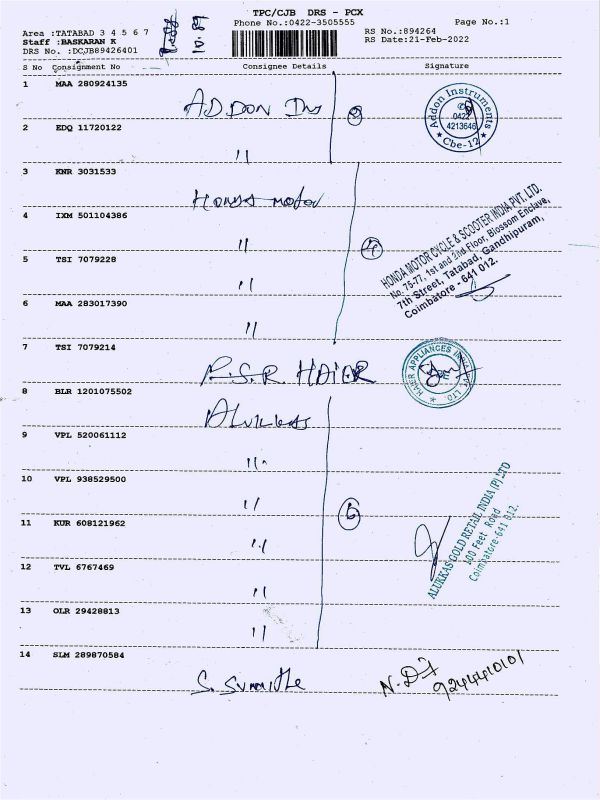 TPC/CJB DRS - PCX
Phone No.:0422-3505555
Page No.:1
Area :TATABAD 3 4 5 6 7
Staff :BASKARAN K
DRS No. :DCJB89426401
RS No.:894264
RS Date:21-Feb-2022
S No Consignment No Consignee Details Signature
1 MAA 280924135
ADDON Ins
2
Addon Instruments
0422
4213646
Cbe-12
2 EDQ 11720122
"
3 KNR 3031533
Honda motor
4 IXM 501104386
"
4
HONDA MOTOR CYCLE & SCOOTER INDIA PVT. LTD.
No. 75-77, 1st and 2nd Floor, Blossom Enclave,
7th Street, Tatabad, Gandhipuram,
Coimbatore - 641 012.
5 TSI 7079228
"
6 MAA 283017390
"
7 TSI 7079214
R.S.R HAIER
HAIER APPLIANCES INDIA PVT. LTD.
8 BLR 1201075502
Alukkas
9 VPL 520061112
"
10 VPL 938529500
"
6
ALUKKAS GOLD RETAIL INDIA (P) LTD
100 Feet Road
Coimbatore-641 012.
11 KUR 608121962
"
12 TVL 6767469
"
13 OLR 29428813
"
14 SLM 289870584
S. Sumithe
9244410101